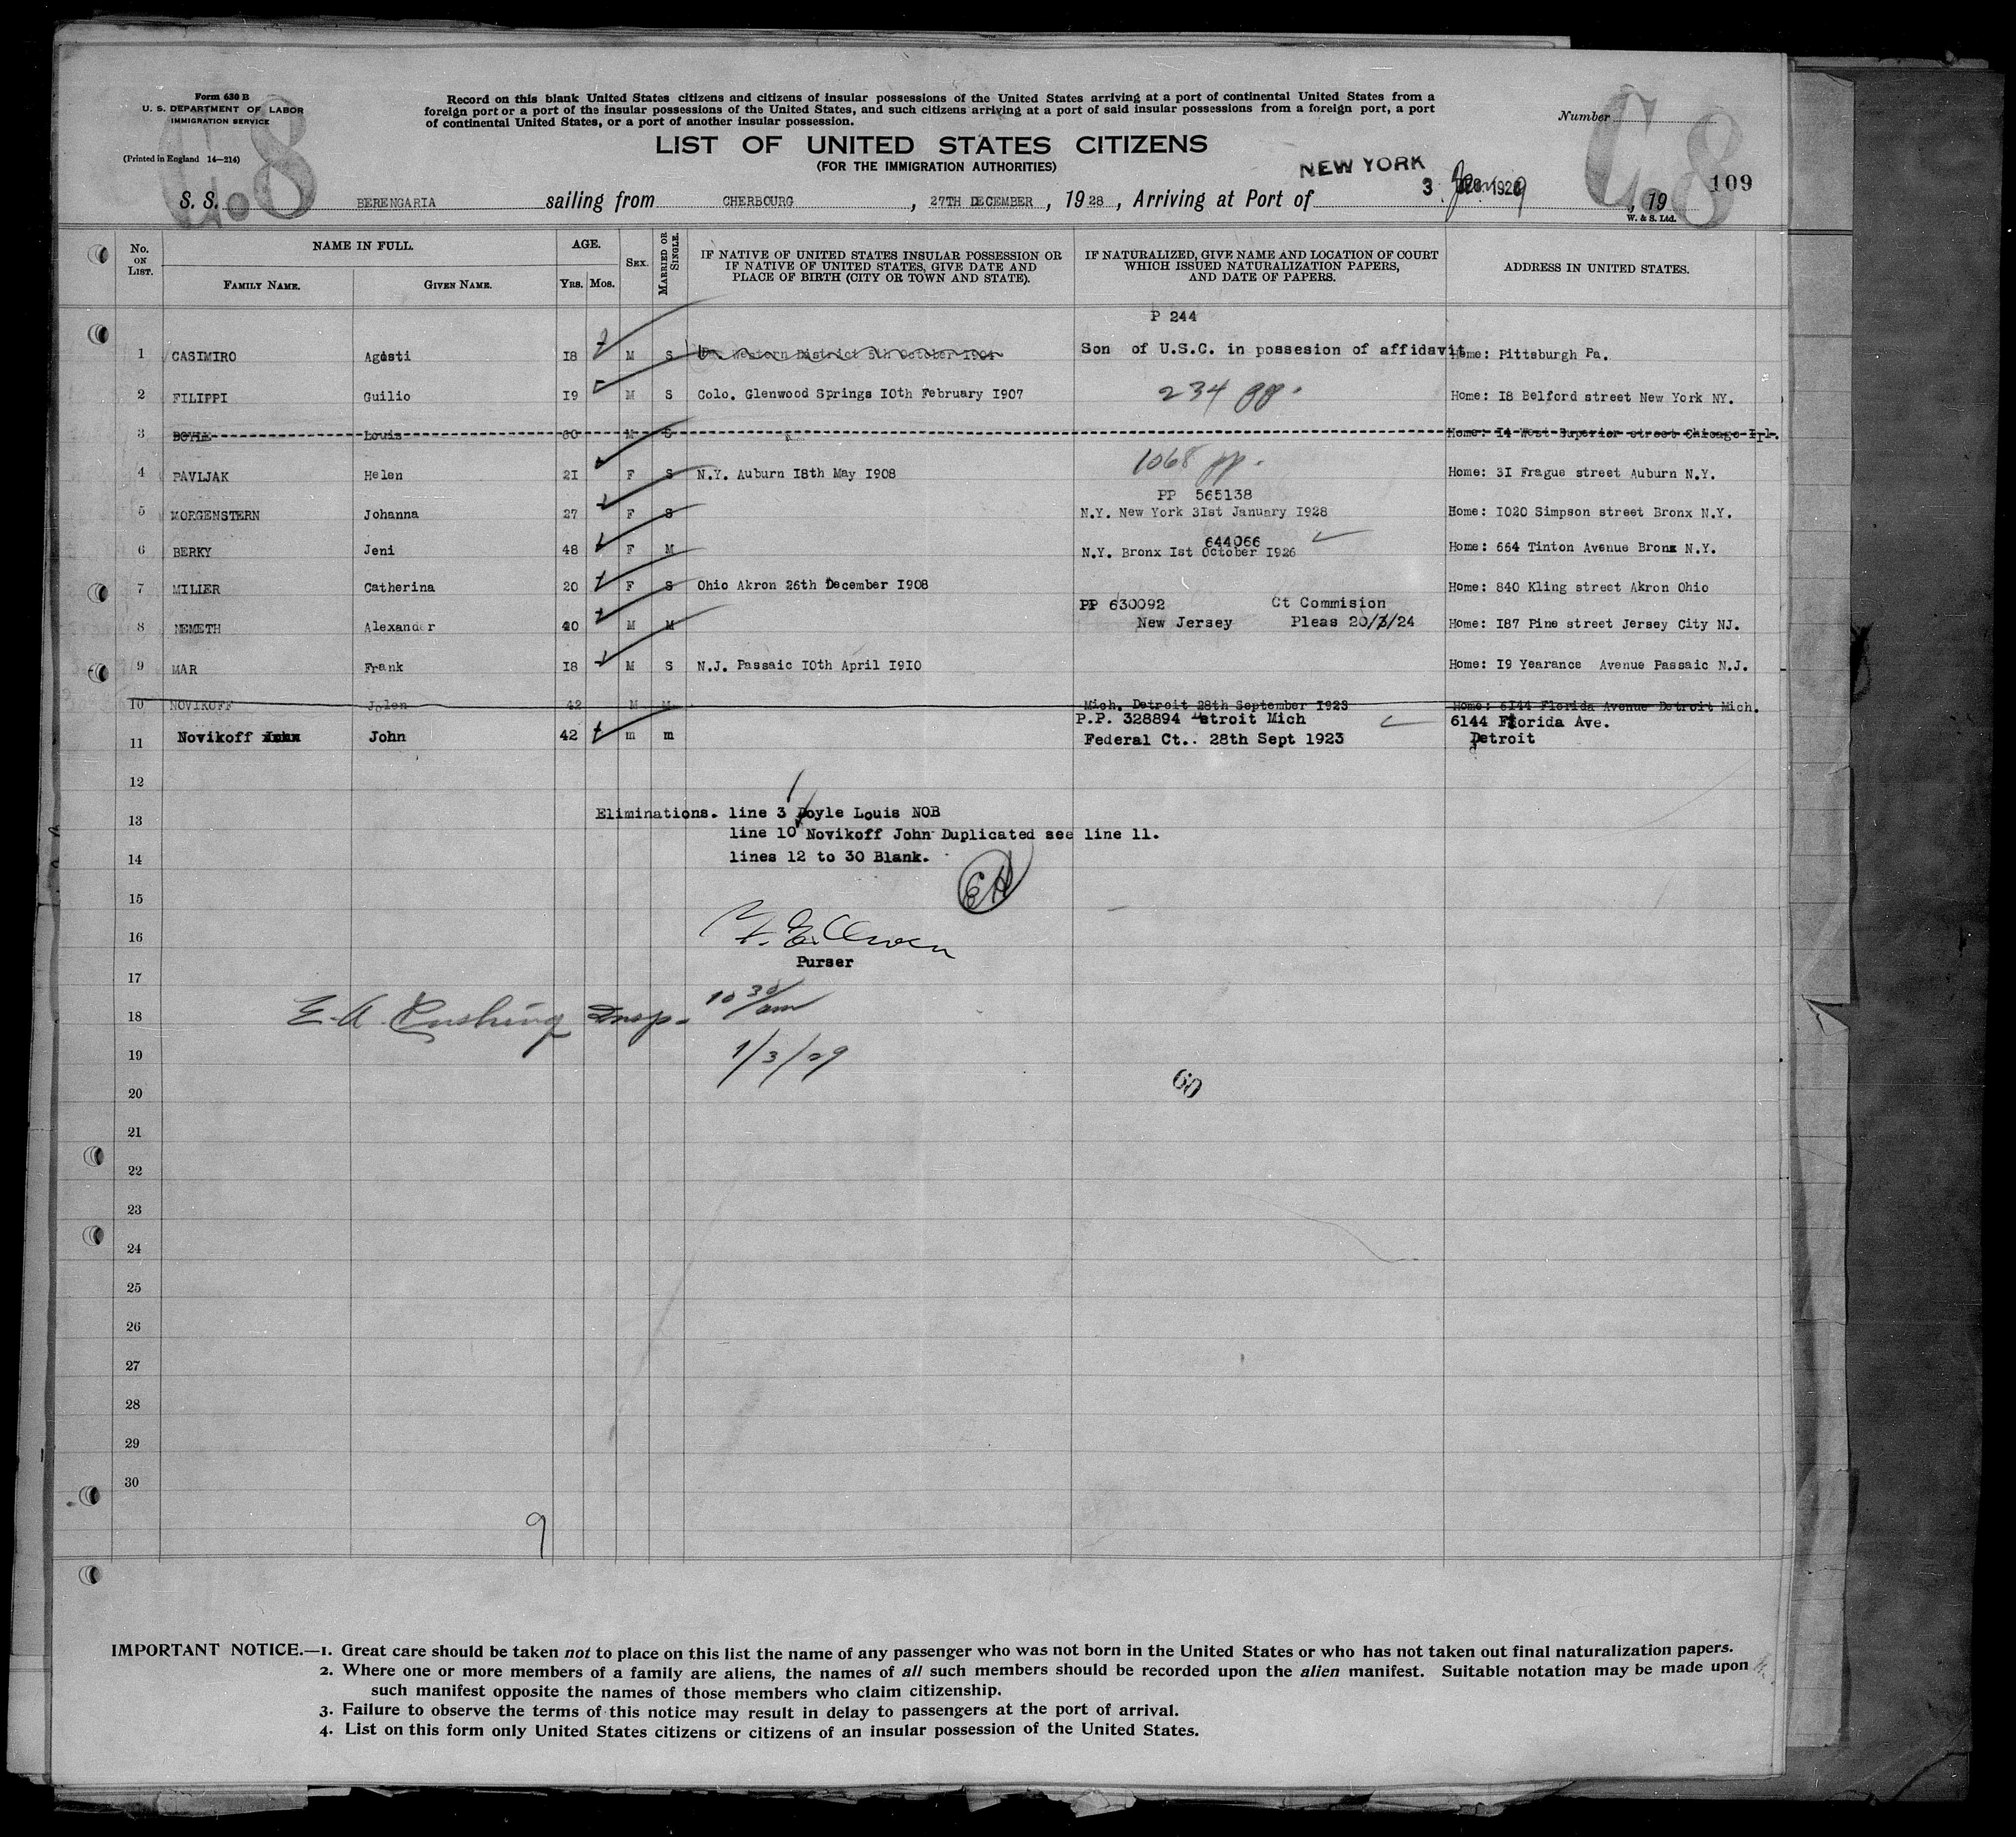 Form 630 B
U. S. DEPARTMENT OF LABOR
IMMIGRATION SERVICE
(Printed in England 14—214)
Co 8
Record on this blank United States citizens and citizens of insular possessions of the United States arriving at a port of continental United States from a
foreign port or a port of the insular possessions of the United States, and such citizens arriving at a port of said insular possessions from a foreign port, a port
of continental United States, or a port of another insular possession.
LIST OF UNITED STATES CITIZENS
(FOR THE IMMIGRATION AUTHORITIES)
Number
Co 8
109
S. S. BERENGARIA sailing from CHERBOURG, 27TH DECEMBER, 1928, Arriving at Port of NEW YORK 3 Jan 1929, 19
W. & S. Ltd.
No. ON LIST. NAME IN FULL. FAMILY NAME. GIVEN NAME. AGE. YRS. MOS. SEX. MARRIED OR SINGLE. IF NATIVE OF UNITED STATES INSULAR POSSESSION OR IF NATIVE OF UNITED STATES, GIVE DATE AND PLACE OF BIRTH (CITY OR TOWN AND STATE). IF NATURALIZED, GIVE NAME AND LOCATION OF COURT WHICH ISSUED NATURALIZATION PAPERS, AND DATE OF PAPERS. ADDRESS IN UNITED STATES.
P 244
1 CASIMIRO Agosti 18 M S Western District 5th October 1904 Son of U.S.C. in possesion of affidavit Home: Pittsburgh Pa.
2 FILIPPI Guilio 19 M S Colo. Glenwood Springs 10th February 1907 234 pp. Home: 18 Belford street New York NY.
3 DOYLE Louis 60 M S Home: 14 West Superior street Chicago Ill.
4 PAVLJAK Helen 21 F S N.Y. Auburn 18th May 1908 1068 pp. Home: 31 Frague street Auburn N.Y.
PP 565138
5 MORGENSTERN Johanna 27 F S N.Y. New York 31st January 1928 Home: 1020 Simpson street Bronx N.Y.
644066
6 BERKY Jeni 48 F M N.Y. Bronx 1st October 1926 Home: 664 Tinton Avenue Bronx N.Y.
7 MILLER Catherina 20 F S Ohio Akron 26th December 1908 Home: 840 Kling street Akron Ohio
PP 630092 Ct Commision
8 NEMETH Alexander 40 M M New Jersey Pleas 20/3/24 Home: 187 Pine street Jersey City NJ.
9 MAR Frank 18 M S N.J. Passaic 10th April 1910 Home: 19 Yearance Avenue Passaic N.J.
10 NOVIKOFF 42 M M Mich. Detroit 28th September 1923 Home: 6144 Florida Avenue Detroit Mich.
P.P. 328894 Detroit Mich 6144 Florida Ave.
11 Novikoff John 42 m m Federal Ct.. 28th Sept 1923 Detroit
12
13 Eliminations. line 3 Doyle Louis NOB
line 10 Novikoff John Duplicated see line 11.
14 lines 12 to 30 Blank.
EA
15
16
Purser
17
18 E. A. Cushing Insp. 10 30/am
19 1/3/29
60
20
21
22
23
24
25
26
27
28
29
30
9
IMPORTANT NOTICE.—1. Great care should be taken not to place on this list the name of any passenger who was not born in the United States or who has not taken out final naturalization papers.
2. Where one or more members of a family are aliens, the names of all such members should be recorded upon the alien manifest. Suitable notation may be made upon
such manifest opposite the names of those members who claim citizenship.
3. Failure to observe the terms of this notice may result in delay to passengers at the port of arrival.
4. List on this form only United States citizens or citizens of an insular possession of the United States.